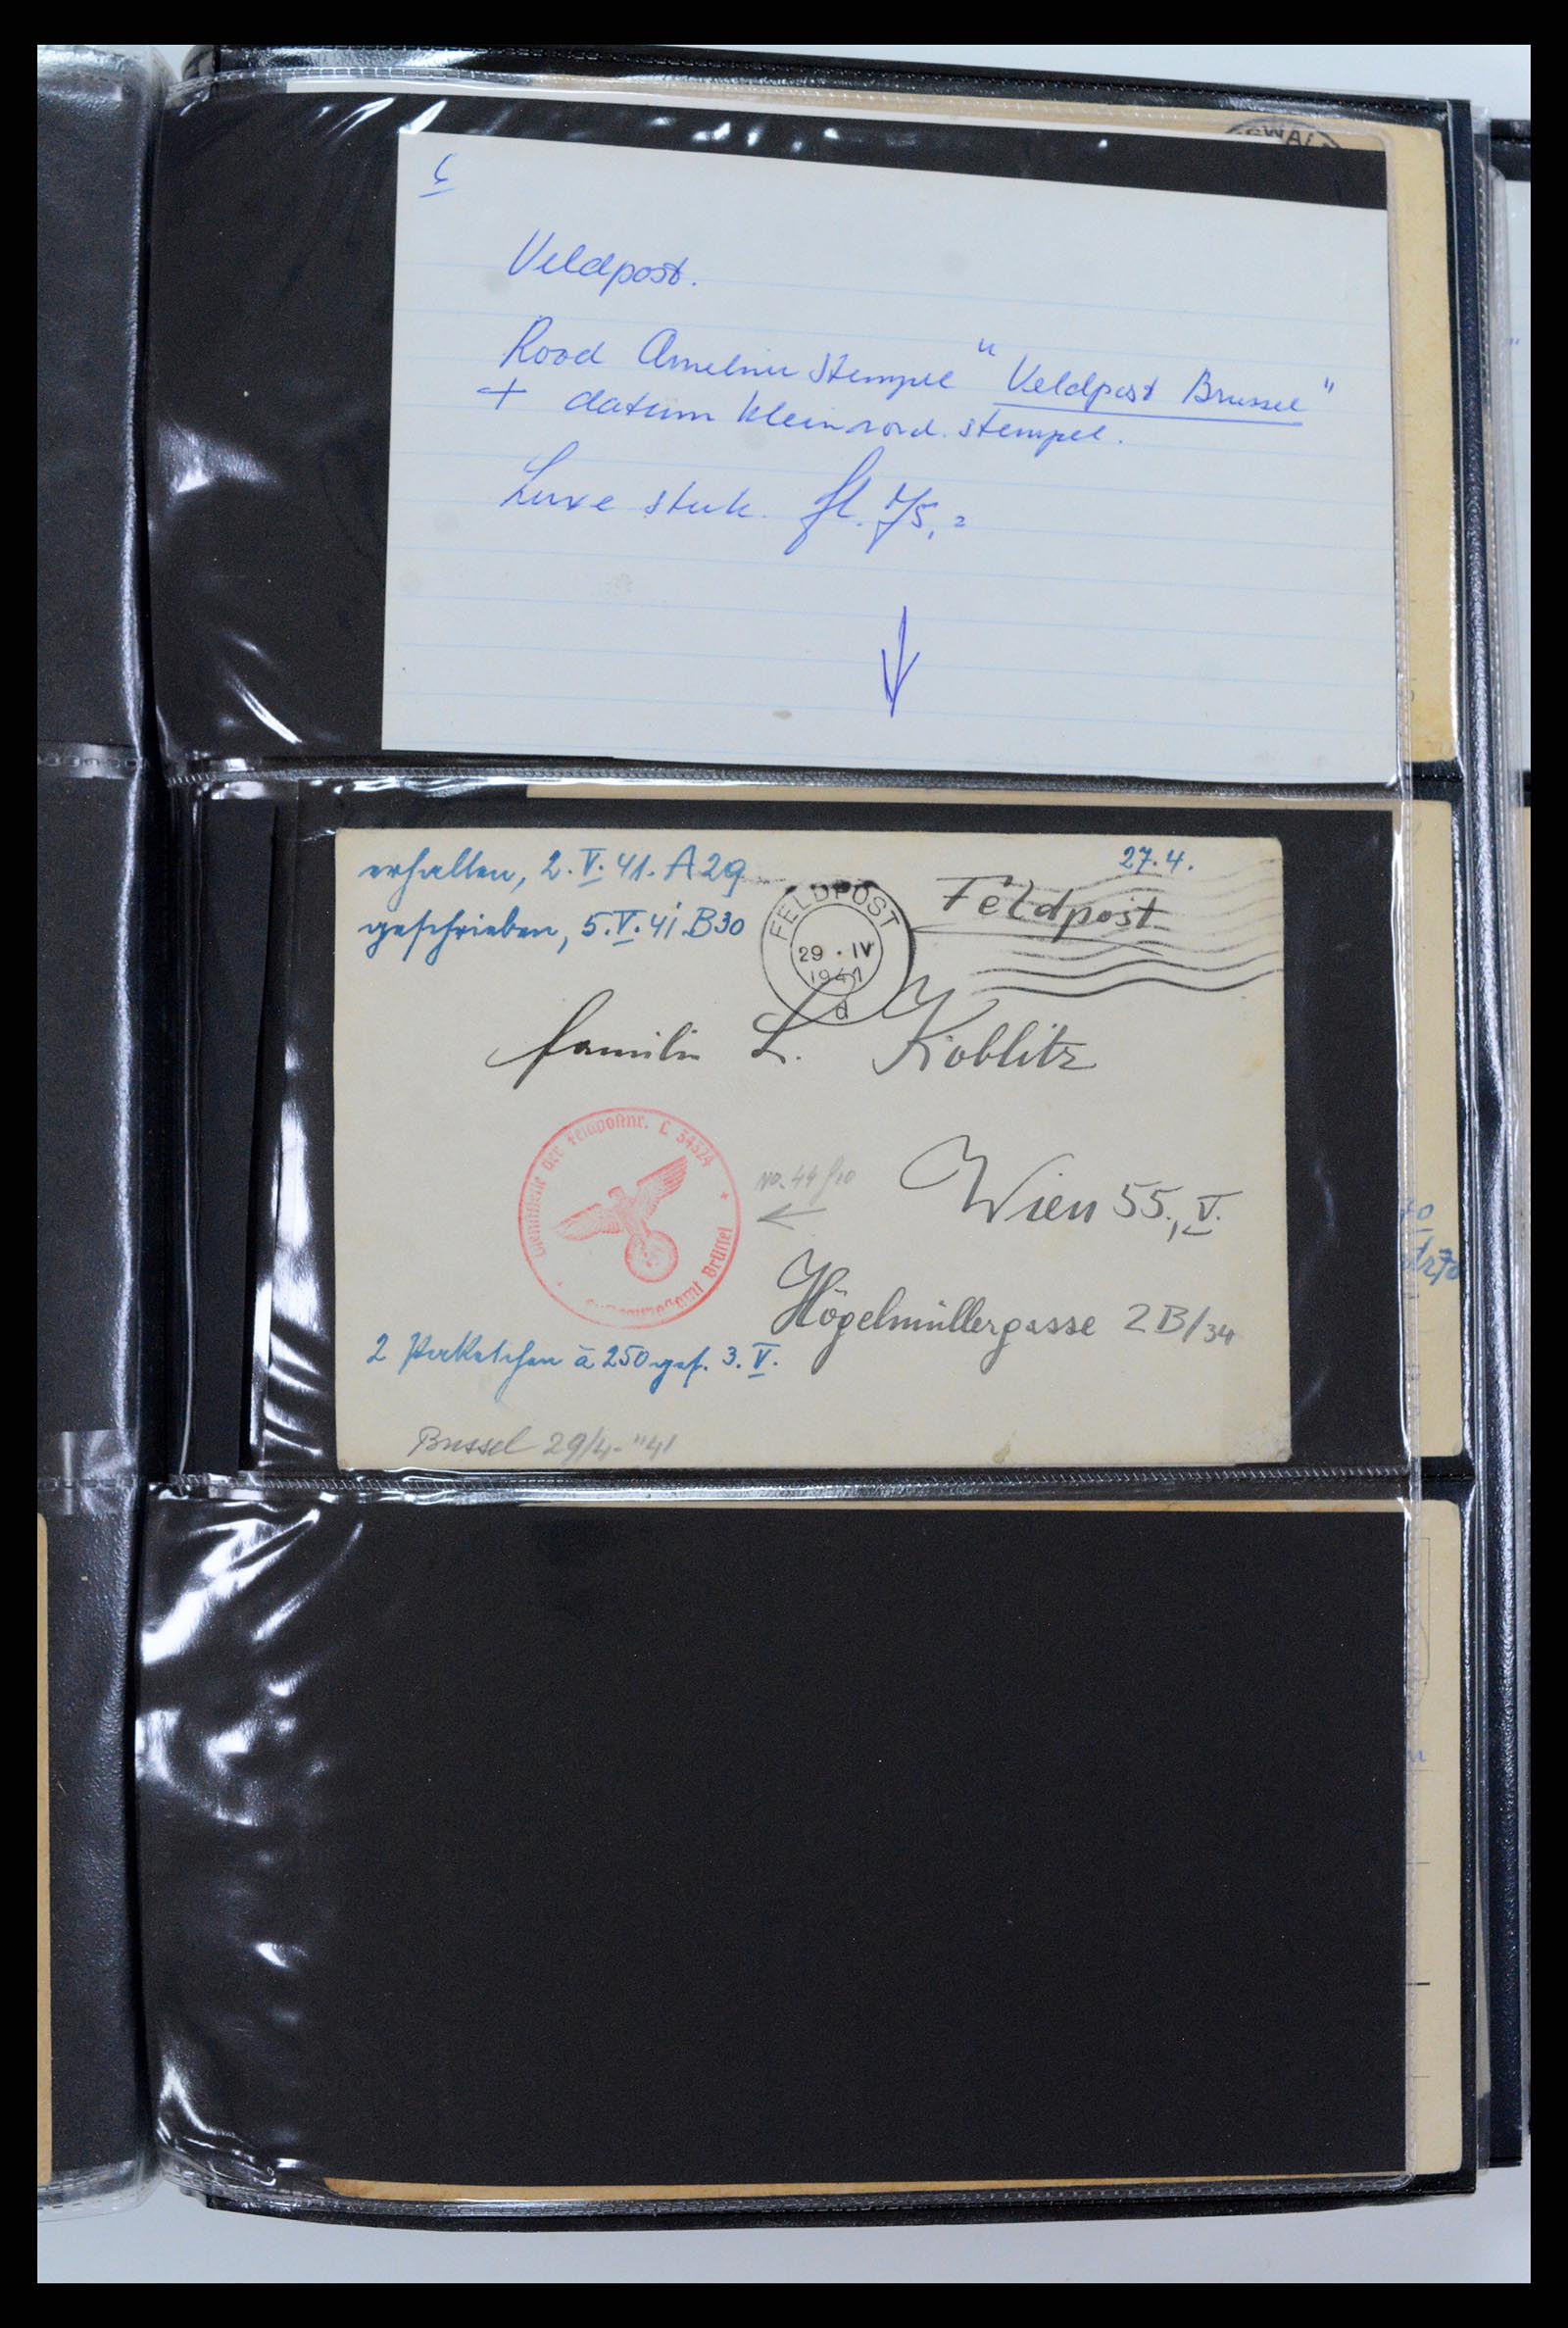 Veldpost.
Rood stempel "Veldpost Brussel"
+ datum klein rond. stempel.
Luxe stuk. fl. 75,=
erhalten, 2.V.41. A29
geschrieben, 5.V.41 B30
27.4.
FELDPOST
29 · IV
1941
d
Feldpost
Familie L. Koblitz
Dienststelle der Feldpostnr. L 34324
Brüssel
no. 44
Wien 55., V.
Högelmüllergasse 2B/34
2 Paketchen à 250 ges. 3. V.
Brussel 29/4-"41